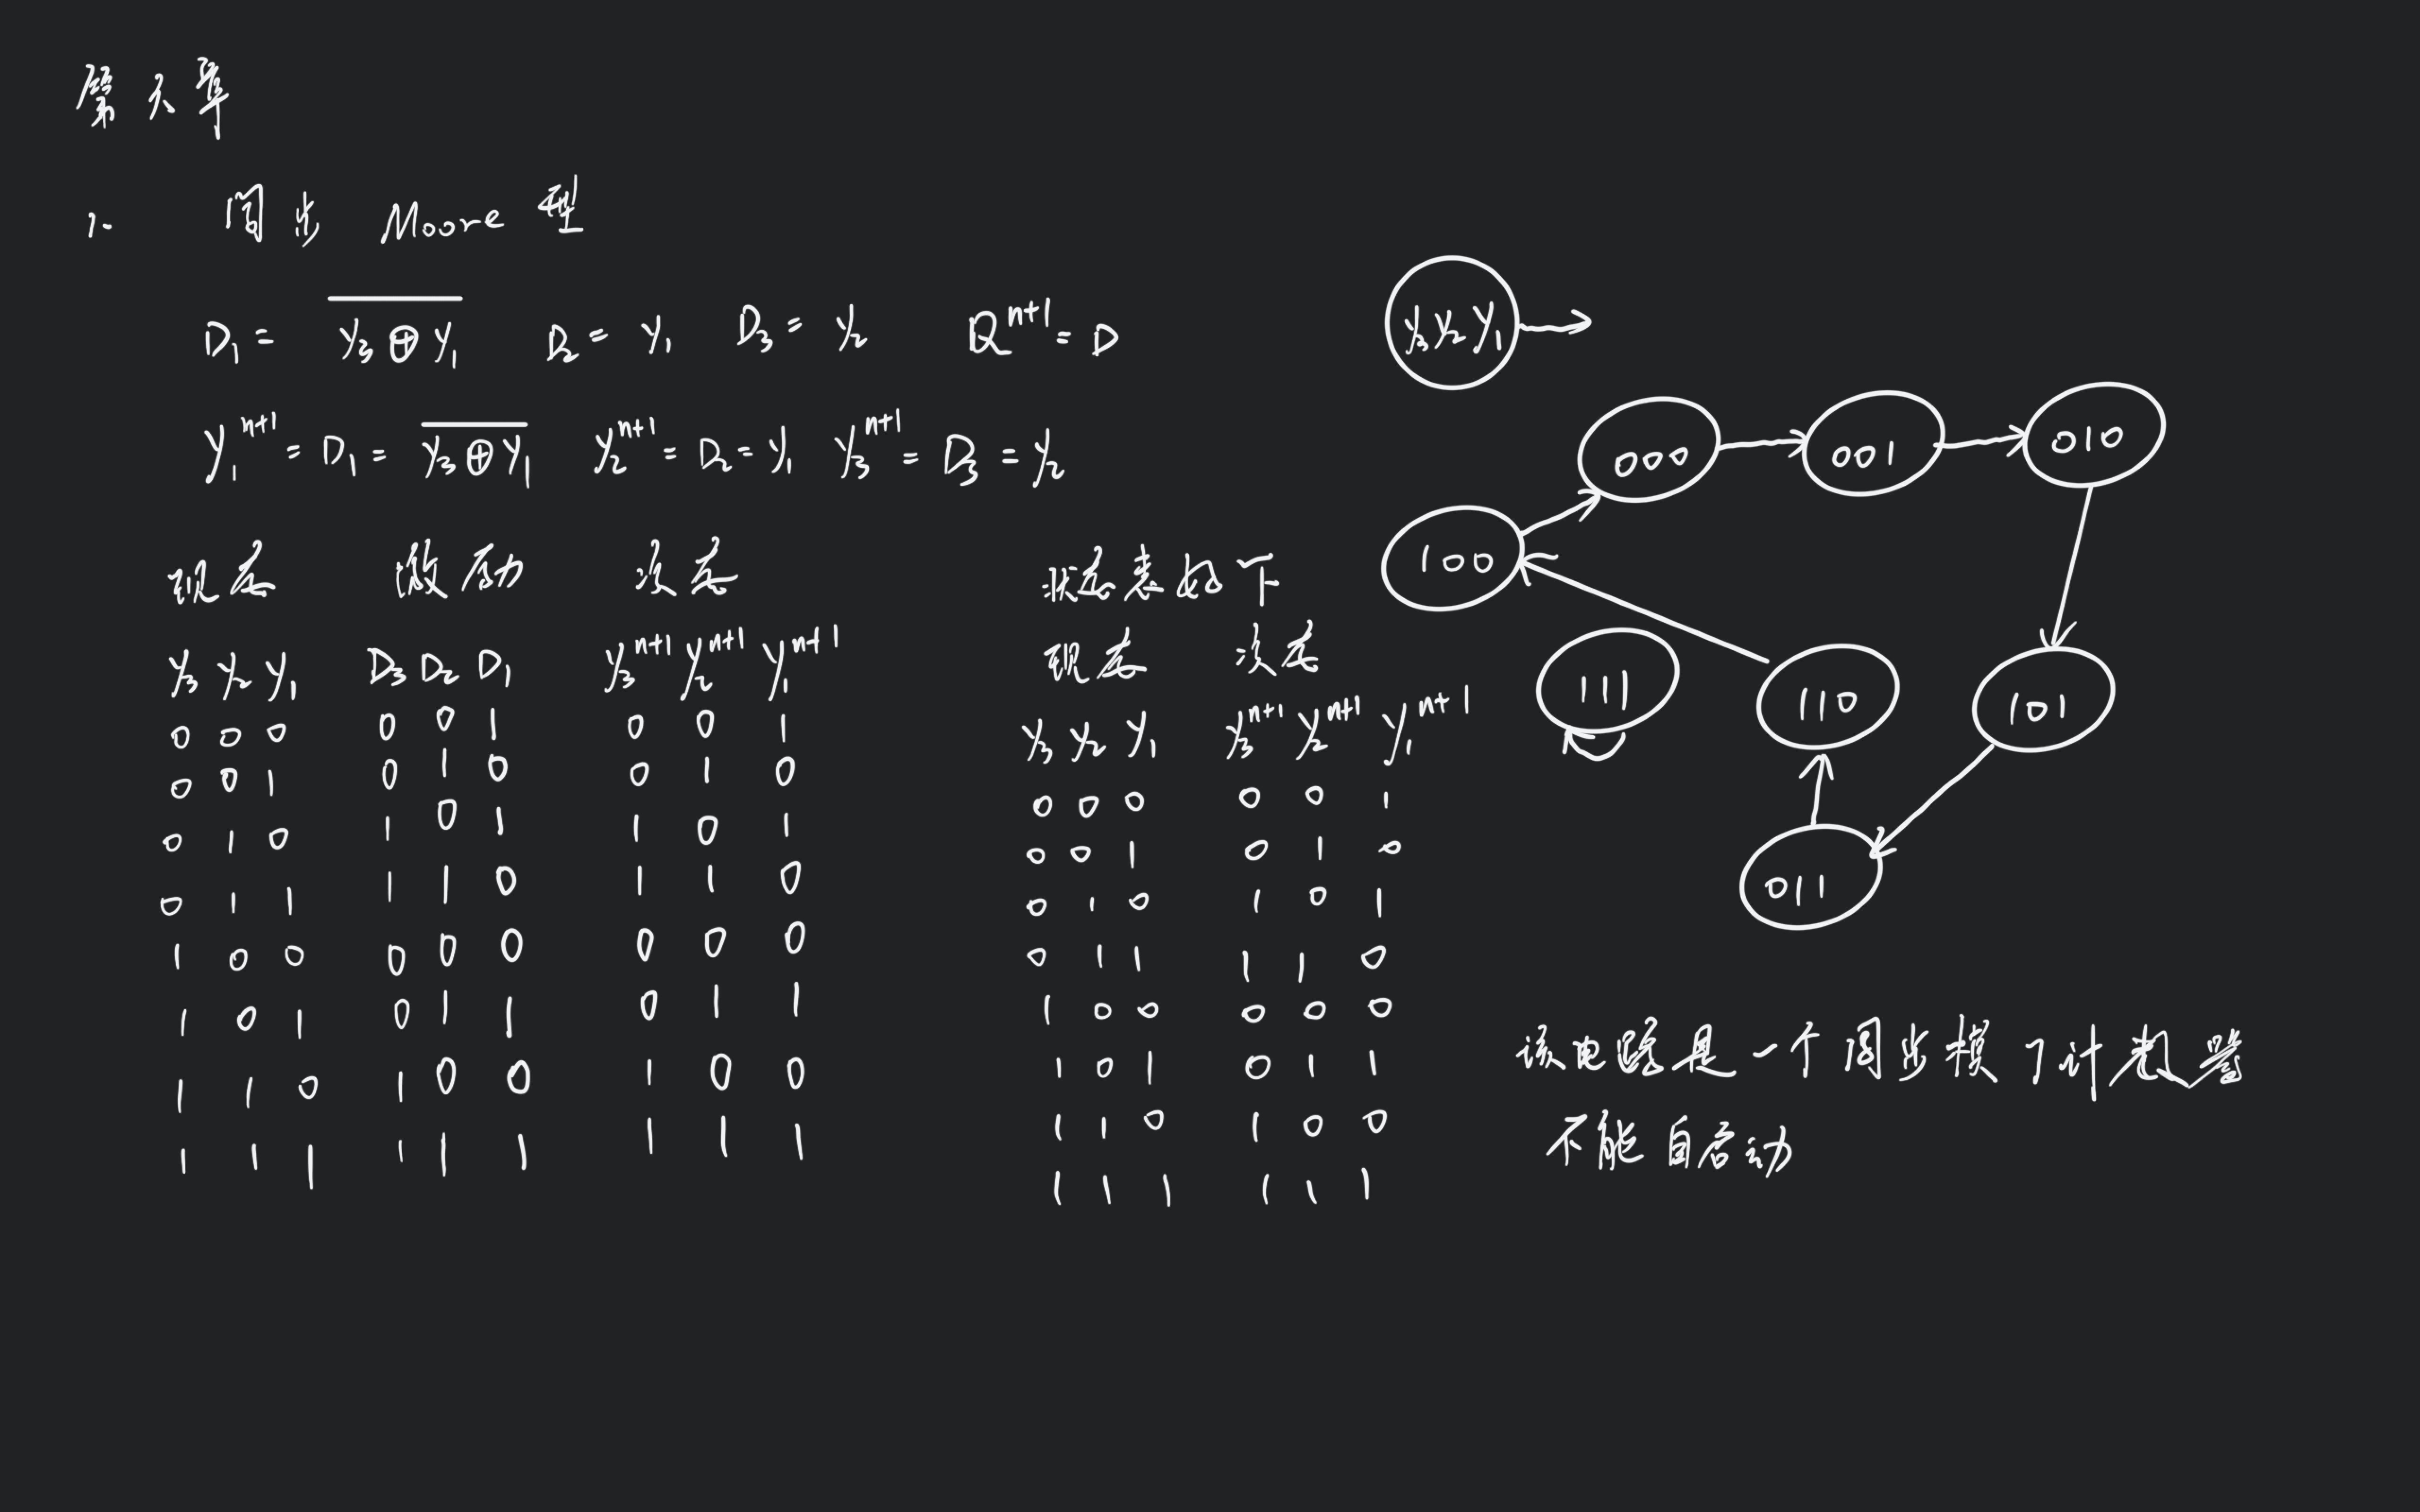 第六章
1. 同步 Moore 型
D₁ = \overline{y₃⊕y₁} D₂ = y₁ D₃ = y₂ Qⁿ⁺¹ = D
y₁ⁿ⁺¹ = D₁ = \overline{y₃⊕y₁} y₂ⁿ⁺¹ = D₂ = y₁ y₃ⁿ⁺¹ = D₃ = y₂
现态 激励 次态
y₃ y₂ y₁ D₃ D₂ D₁ y₃ⁿ⁺¹ y₂ⁿ⁺¹ y₁ⁿ⁺¹
0 0 0 0 0 1 0 0 1
0 0 1 0 1 0 0 1 0
0 1 0 1 0 1 1 0 1
0 1 1 1 1 0 1 1 0
1 0 0 0 0 0 0 0 0
1 0 1 0 1 1 0 1 1
1 1 0 1 0 0 1 0 0
1 1 1 1 1 1 1 1 1
状态表如下
现态 次态
y₃ y₂ y₁ y₃ⁿ⁺¹ y₂ⁿ⁺¹ y₁ⁿ⁺¹
0 0 0 0 0 1
0 0 1 0 1 0
0 1 0 1 0 1
0 1 1 1 1 0
1 0 0 0 0 0
1 0 1 0 1 1
1 1 0 1 0 0
1 1 1 1 1 1
y₃y₂y₁
000
001
010
100
111
110
101
011
该电路是一个同步模7计数器
不能自启动